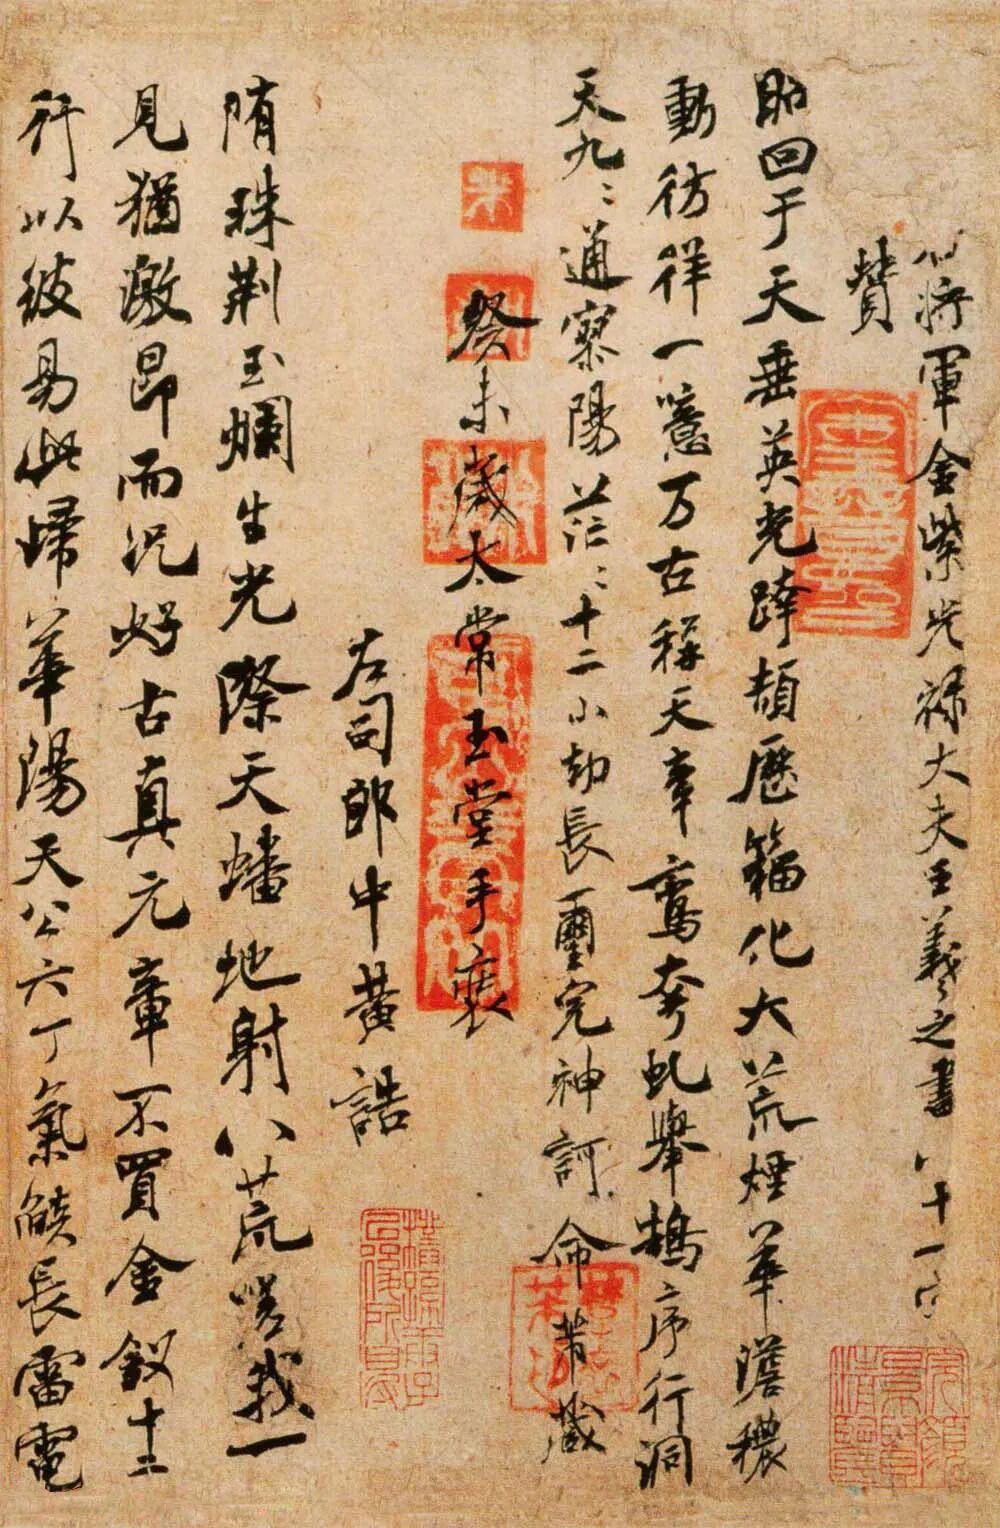 右將軍金紫光祿大夫王羲之書八十一字
贊
昭回于天垂英光跨頡歷籀化大荒煙華澹穠
動彷徉一噫万古稱天章鸞夸虬舉鵠序行洞
天九〻通寥陽茫〻十二小劫長璽完神訶命芾藏
癸未歲太常玉堂手裝
左司郎中黃誥
隋珠荆玉爛生光際天蟠地射八荒嗟我一
見猶激昂而況好古真元章不買金釵十二
行以彼易此歸華陽天公六丁氣燄長雷電